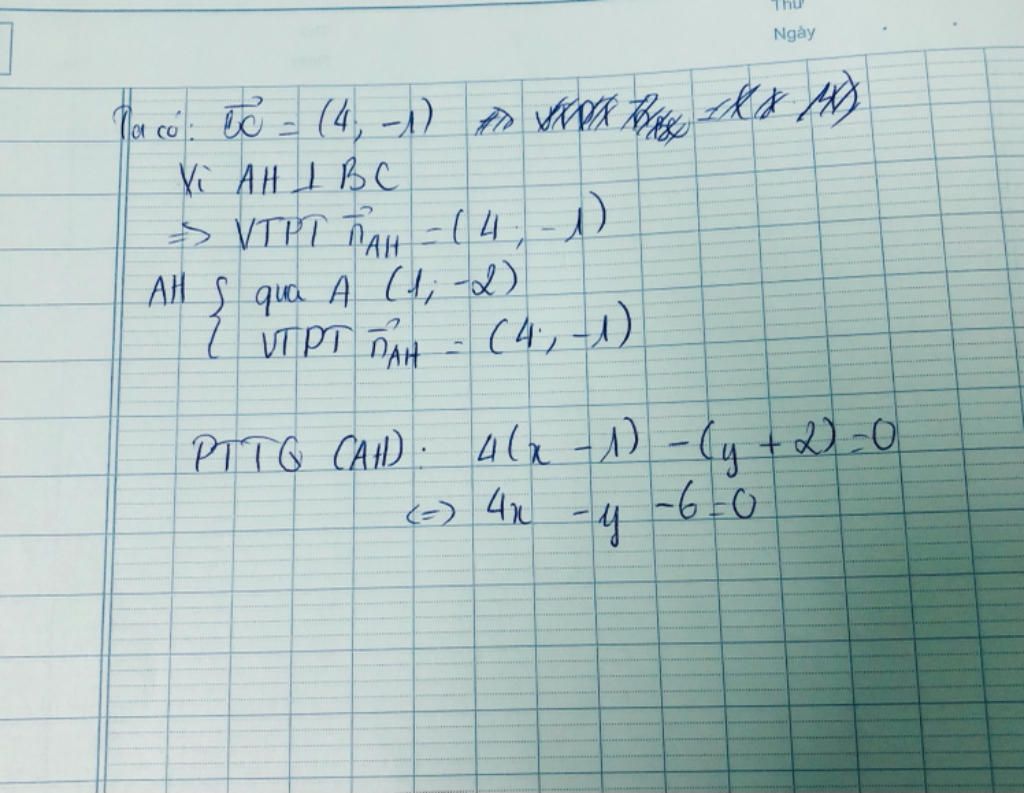 Thứ
Ngày
Ta có: \overrightarrow{BC} = (4; -1) =>
Vì AH ⊥ BC
=> VTPT \vec{n}_{AH} = (4; -1)
AH { qua A (1; -2)
{ VTPT \vec{n}_{AH} = (4; -1)
PTTQ (AH): 4(x - 1) - (y + 2) = 0
<=> 4x - y - 6 = 0